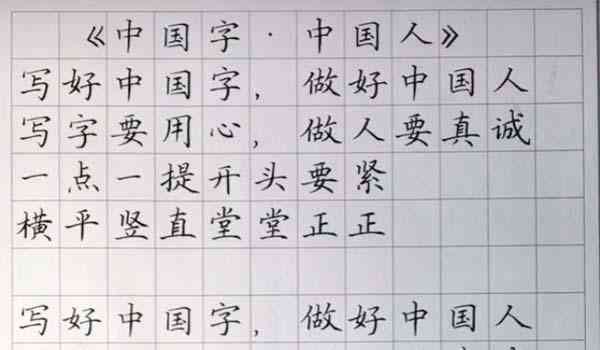 《中国字·中国人》
写好中国字，做好中国人
写字要用心，做人要真诚
一点一提开头要紧
横平竖直堂堂正正
写好中国字，做好中国人